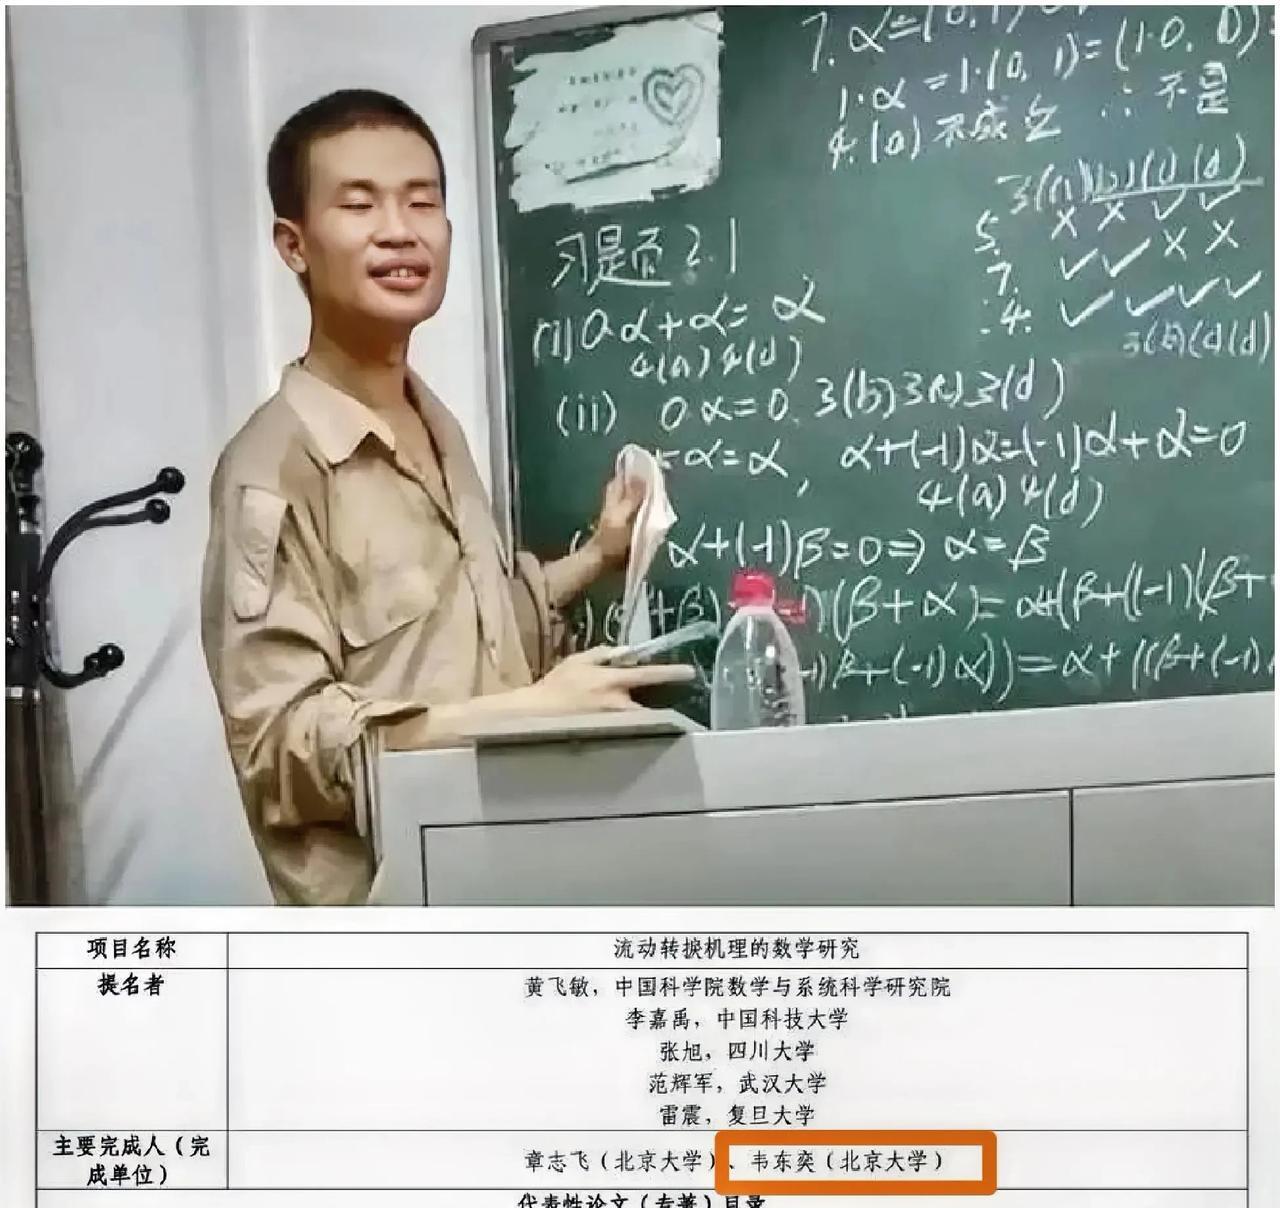 7. α=(0,1)
1·α=1·(0,1)=(1·0,0)=
4.(a)不成立 ∴不是
3(a)(b)(c)(d)
5. × × ✓ ✓
7. ✓ ✓ × ×
4. ✓ ✓ ✓ ✓
习是页2.1
(i)0α+α=α
4(a)4(d)
(ii) 0α=0. 3(b)3(d)
α=α, α+(-1)α=(-1)α+α=0
4(a)4(d)
α+(-1)β=0⇒α=β
(β+α)=α+(β+((-1)(β+
β+(-1)α))=α+((β+(-1)
项目名称 流动转捩机理的数学研究
提名者 黄飞敏，中国科学院数学与系统科学研究院
李嘉禹，中国科技大学
张旭，四川大学
范辉军，武汉大学
雷震，复旦大学
主要完成人（完成单位） 章志飞（北京大学）、韦东奕（北京大学）
代表性论文（专著）目录